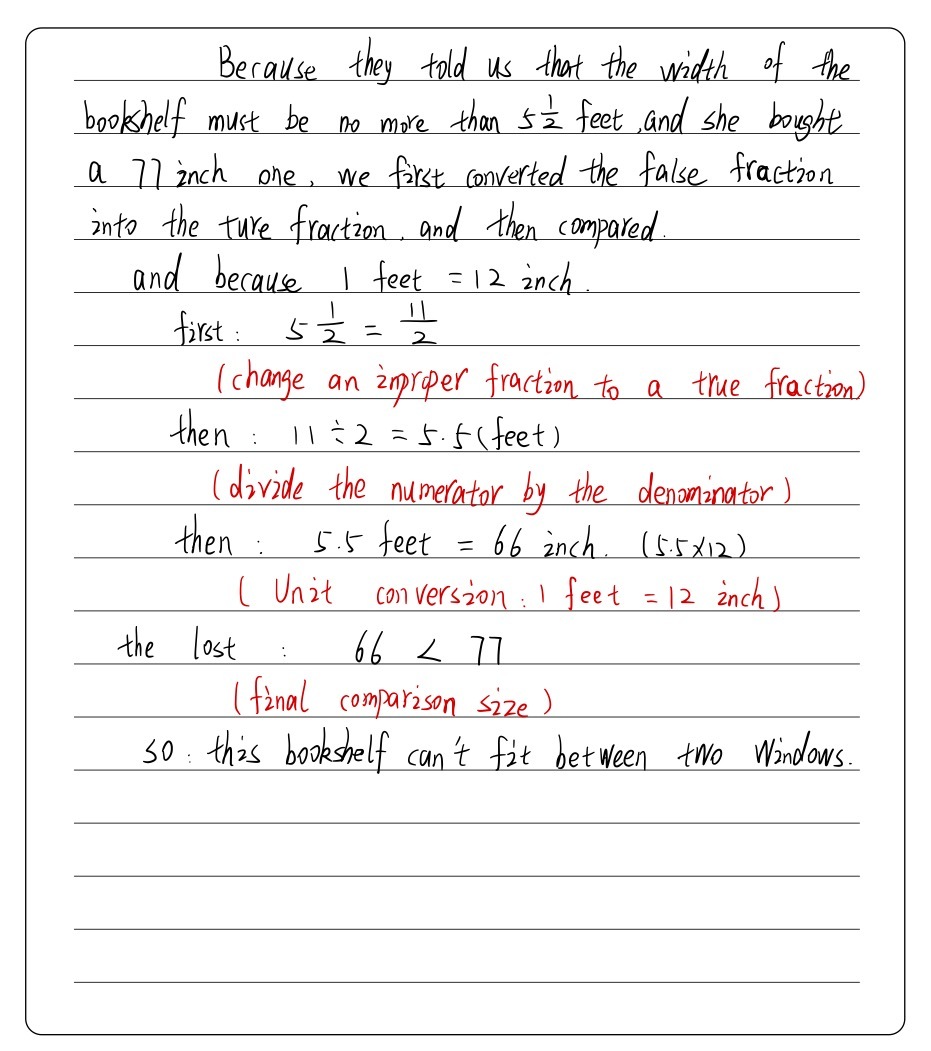 Because they told us that the width of the
bookshelf must be no more than 5 1/2 feet, and she bought
a 77 inch one, we first converted the false fraction
into the ture fraction, and then compared.
and because 1 feet = 12 inch.
first: 5 1/2 = 11/2
(change an improper fraction to a true fraction)
then: 11 ÷ 2 = 5.5 (feet)
(divide the numerator by the denominator)
then: 5.5 feet = 66 inch. (5.5×12)
(Unit conversion: 1 feet = 12 inch)
the lost: 66 < 77
(final comparison size)
so: this bookshelf can't fit between two windows.